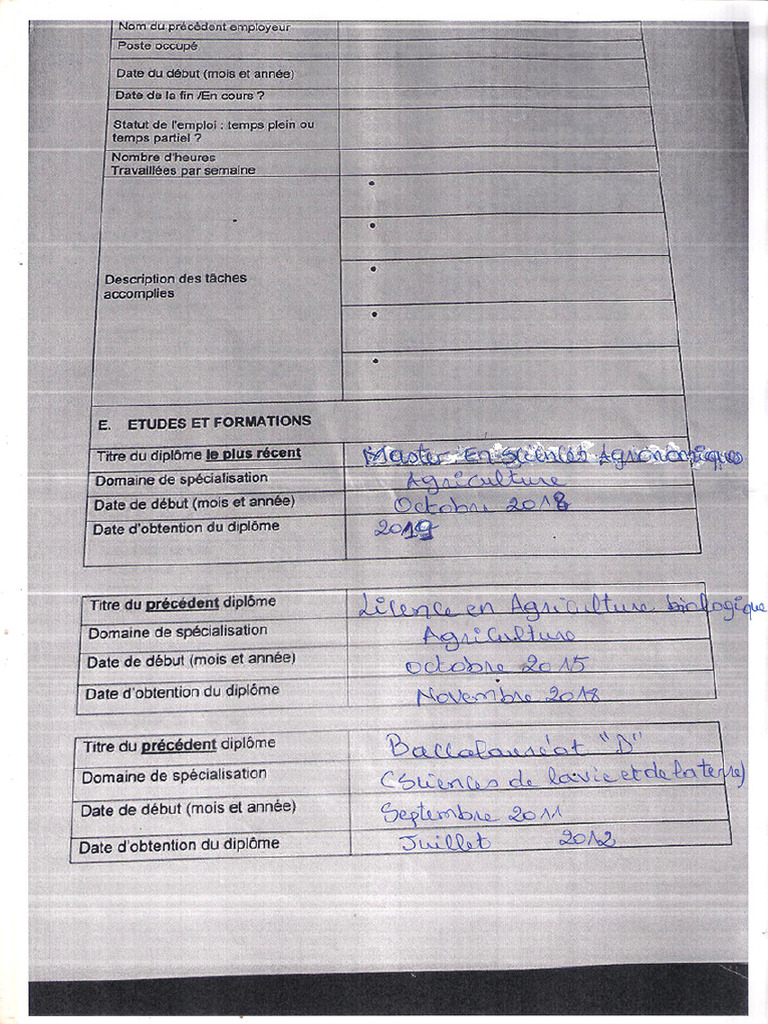 Nom du précédent employeur
Poste occupé
Date du début (mois et année)
Date de la fin /En cours ?
Statut de l'emploi : temps plein ou
temps partiel ?
Nombre d'heures
Travaillées par semaine
•
•
Description des tâches
accomplies
•
•
•
E. ETUDES ET FORMATIONS
Titre du diplôme le plus récent Master En Sciences Agronomiques
Domaine de spécialisation Agriculture
Date de début (mois et année) Octobre 2018
Date d'obtention du diplôme 2019
Titre du précédent diplôme Licence en Agriculture biologique
Domaine de spécialisation Agriculture
Date de début (mois et année) octobre 2015
Date d'obtention du diplôme Novembre 2018
Titre du précédent diplôme Baccalauréat "D"
Domaine de spécialisation (Sciences de la vie et de la terre)
Date de début (mois et année) Septembre 2011
Date d'obtention du diplôme Juillet 2012